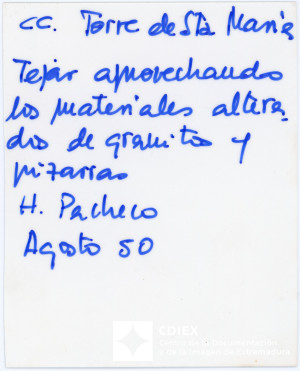 CC. Torre de Sta Maria
Tejar aprovechando
los materiales altera
dos de granitos y
pizarras
H. Pacheco
Agosto 50
CDIEX